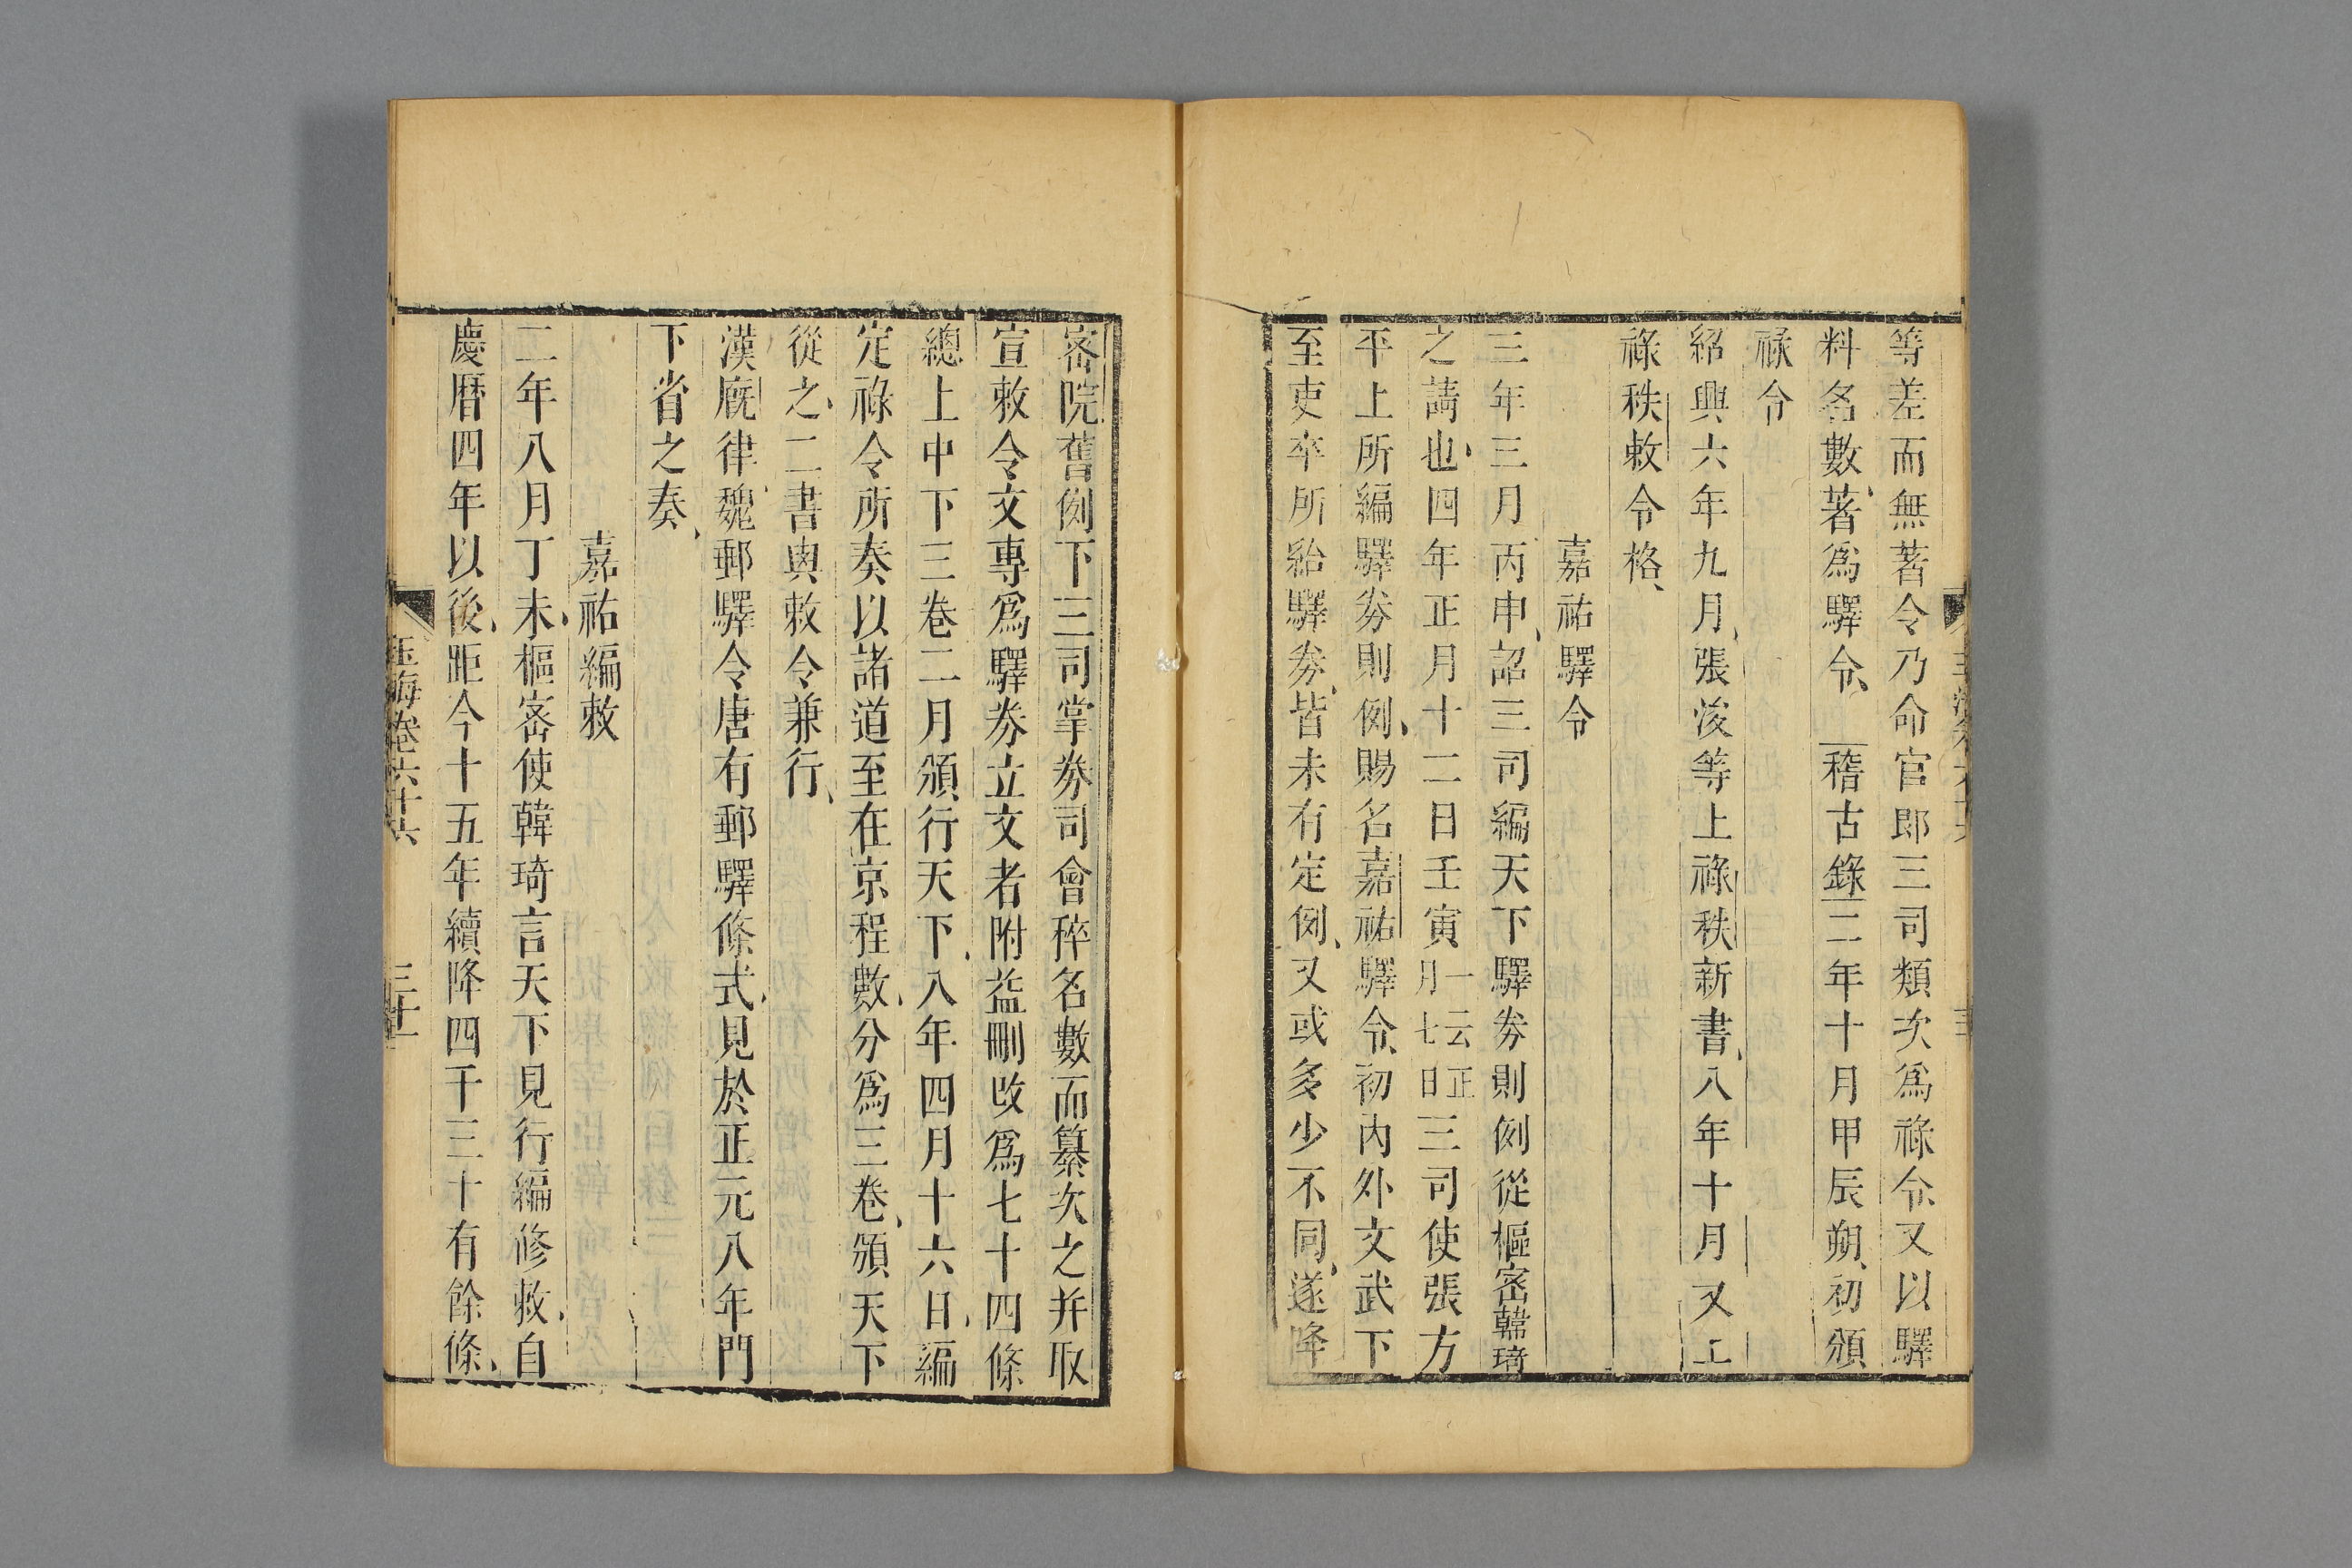 等差而無著令乃命官郎三司類次爲祿令又以驛
料名數著爲驛令稽古錄二年十月甲辰朔初頒
祿令
紹興六年九月張浚等上祿秩新書八年十月又上
祿秩敕令格
嘉祐驛令
三年三月丙申詔三司編天下驛券則例從樞密韓琦
之請也四年正月十二日壬寅一云正月七日三司使張方
平上所編驛券則例賜名嘉祐驛令初內外文武下
至吏卒所給驛券皆未有定例又或多少不同遂降
密院舊例下三司掌券司會稡名數而纂次之并取
宣敕令文專爲驛券立文者附益刪改爲七十四條
總上中下三卷二月頒行天下八年四月十六日編
定祿令所奏以諸道至在京程數分爲三卷頒天下
從之二書與敕令兼行
漢廐律魏郵驛令唐有郵驛條式見於正元八年門
下省之奏
嘉祐編敕
二年八月丁未樞密使韓琦言天下見行編修敕自
慶曆四年以後距今十五年續降四千三十有餘條
玉海卷六十六
三十一